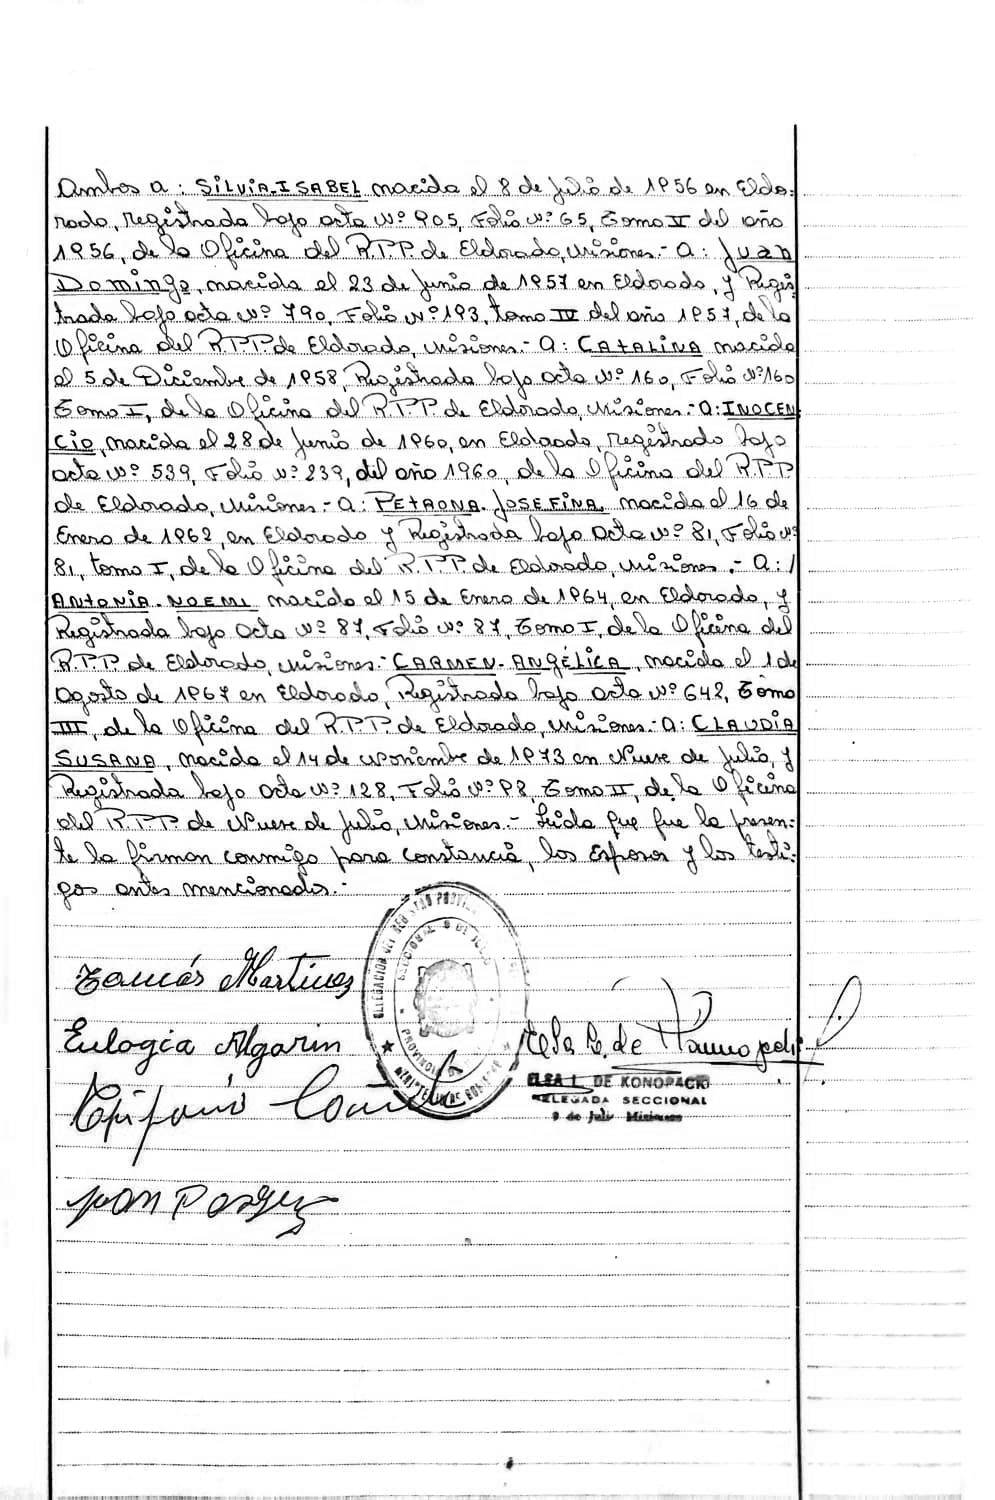 Ambos a: SILVIA-ISABEL nacida el 8 de Julio de 1956 en Eldo-
rado, registrada bajo acta Nº 905, Folio Nº 65, Tomo II del año
1956, de la Oficina del R.P.P. de Eldorado, Misiones.- A: Juan
Domingo, nacida el 23 de Junio de 1957 en Eldorado, y Regis
trada bajo acta Nº 790, Folio Nº 193, tomo IV del año 1957, de la
Oficina del R.P.P. de Eldorado, Misiones.- A: CATALINA nacida
el 5 de Diciembre de 1958, Registrada bajo acta Nº 160, Folio Nº 160
Tomo I, de la Oficina del R.P.P. de Eldorado, Misiones.- A: INOCEN
CIO, nacida el 28 de Junio de 1960, en Eldorado, registrado bajo
acta Nº 539, Folio Nº 239, del año 1960, de la Oficina del R.P.P.
de Eldorado, Misiones.- A: PETRONA-JOSEFINA, nacida el 16 de
Enero de 1962, en Eldorado y Registrada bajo Acta Nº 81, Folio Nº
81, tomo I, de la Oficina del R.P.P. de Eldorado, Misiones.- A: /
ANTONIA-NOEMI nacida el 15 de Enero de 1964, en Eldorado, y
Registrada bajo Acta Nº 87, Folio Nº 87, Tomo I, de la Oficina del
R.P.P. de Eldorado, Misiones.- CARMEN-ANGÉLICA, nacida el 1 de
Agosto de 1967 en Eldorado, Registrada bajo acta Nº 642, Tomo
III, de la Oficina del R.P.P. de Eldorado, Misiones.- A: CLAUDIA
SUSANA, nacida el 14 de Noviembre de 1973 en Nueve de Julio, y
Registrada bajo Acta Nº 128, Folio Nº 98, Tomo II, de la Oficina
del R.P.P. de Nueve de Julio, Misiones.- Leida que fue la presen-
te la firman conmigo para constancia, los Esposos y los testi-
gos antes mencionados.-
DELEGACION DEL REGISTRO PROVIN
SECCIONAL 9 DE JULIO
Martinez
Eulogia Algarin
Elsa L. de Konopacki
ELSA L. DE KONOPACKI
DELEGADA SECCIONAL
9 de Julio Misiones
Epifanio